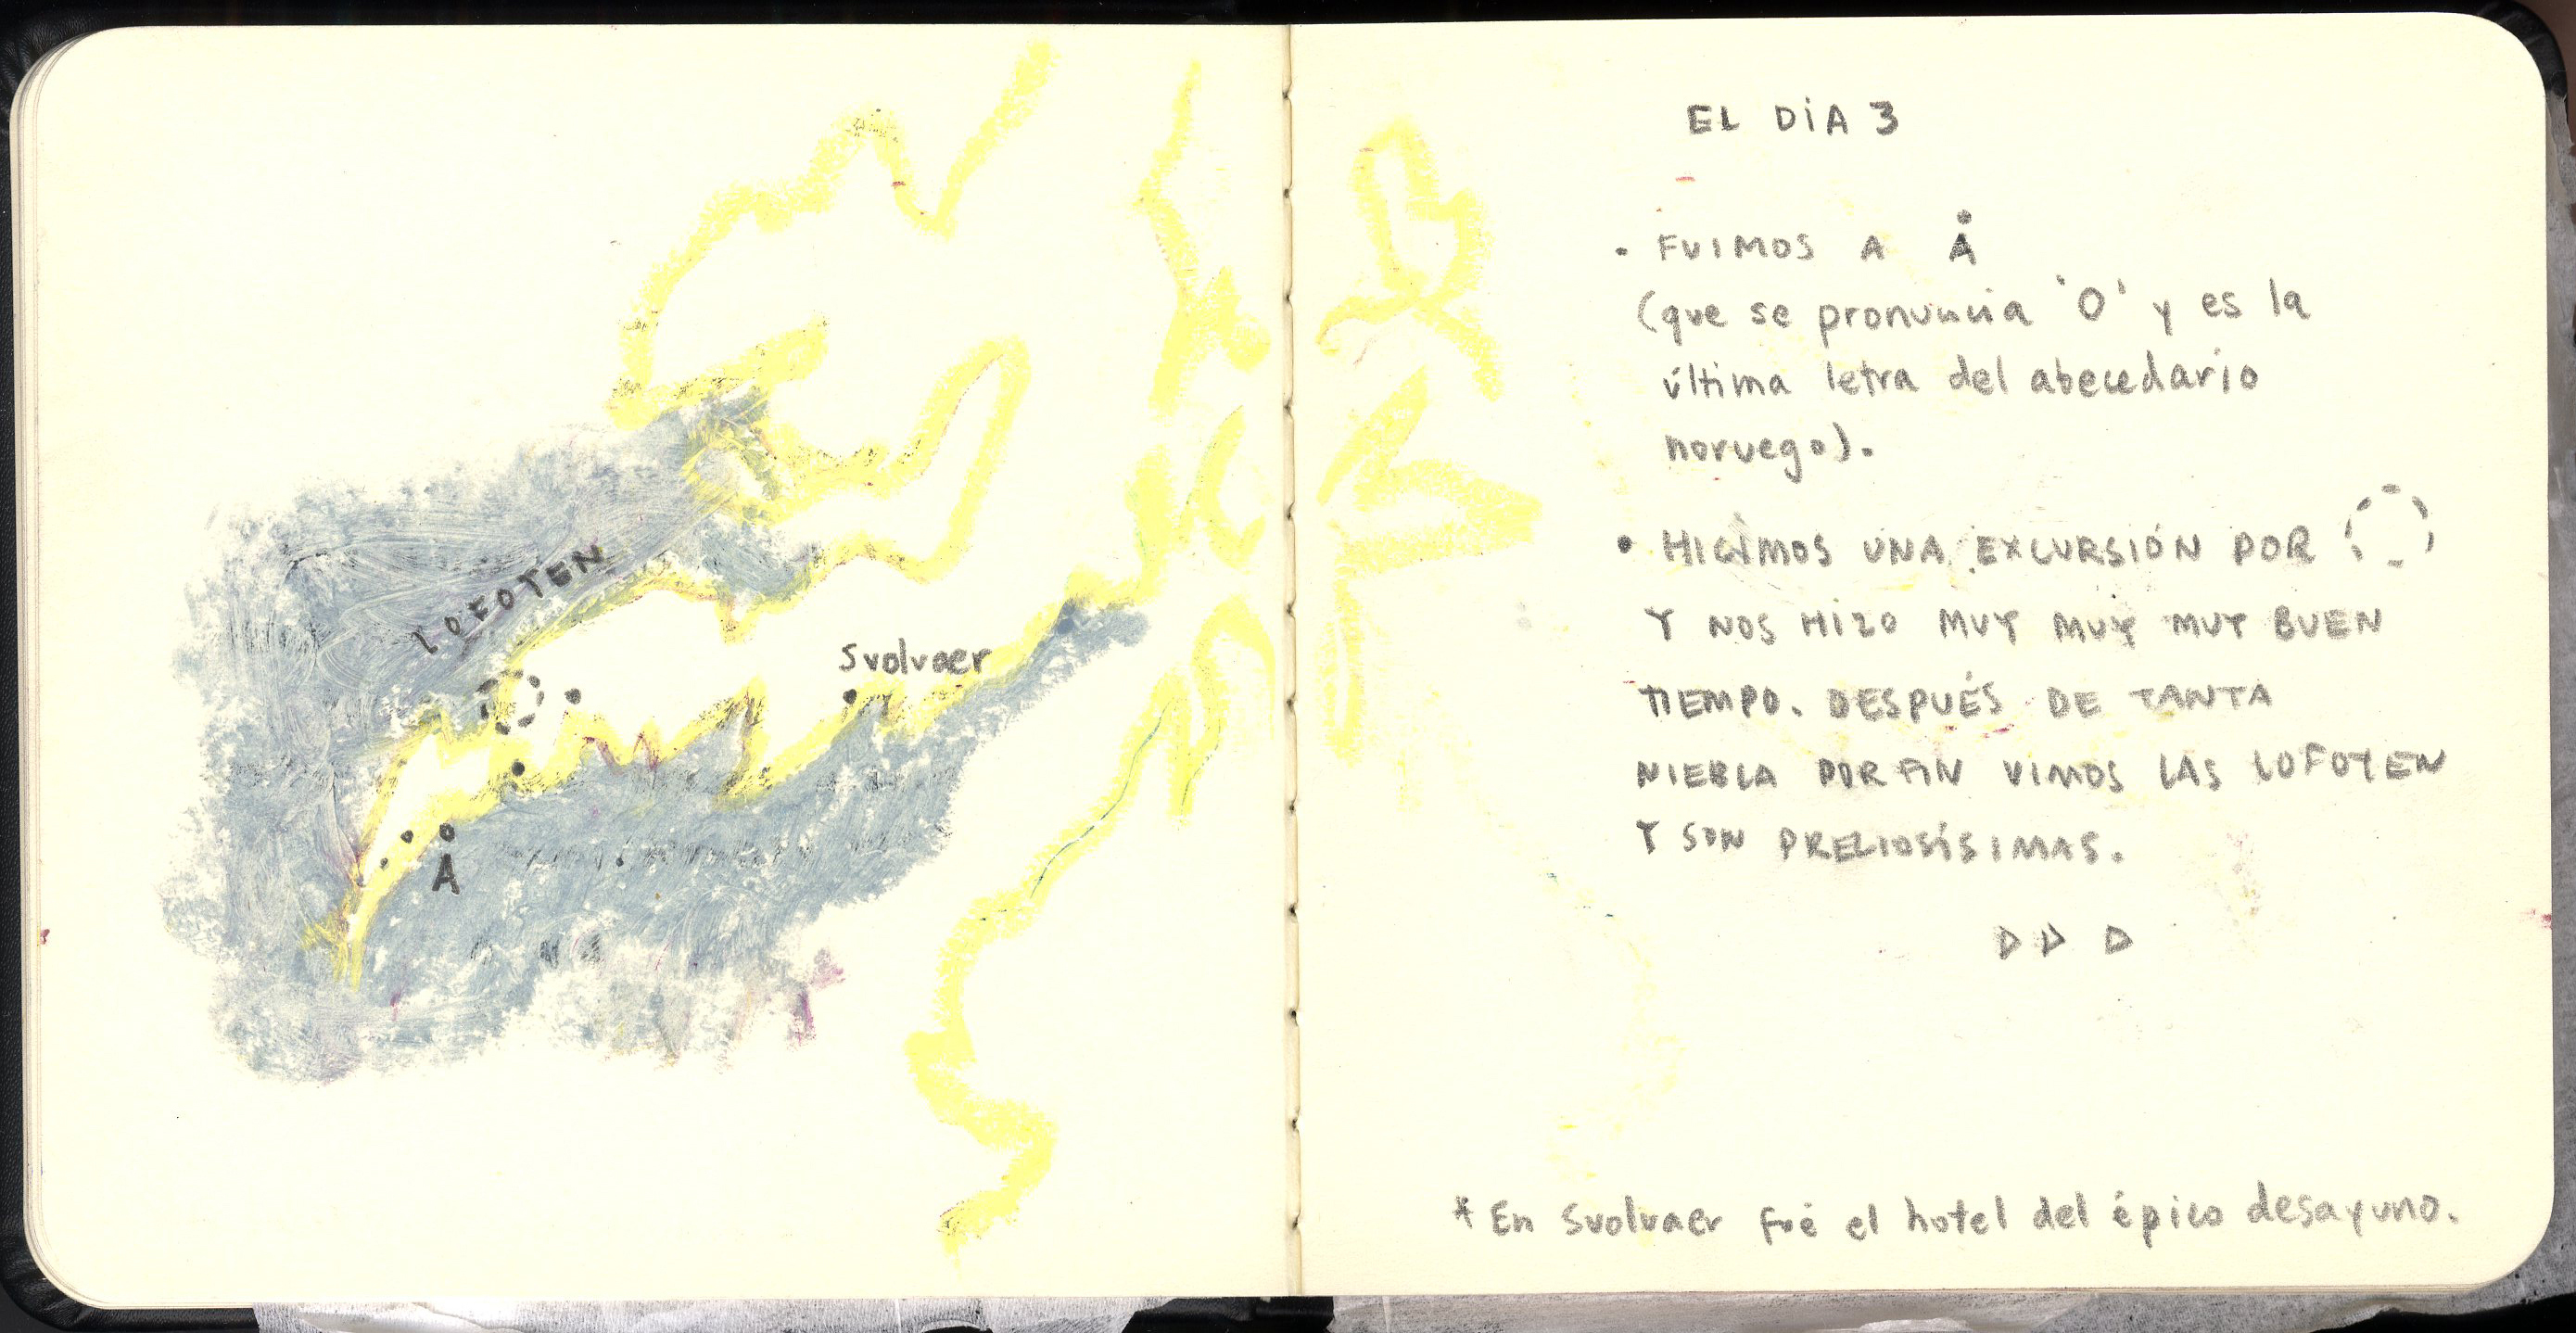 LOFOTEN
Svolvaer
Å
EL DiA 3
• FUIMOS A Å
(que se pronuncia 'O' y es la
última letra del abecedario
noruego).
• HICIMOS UNA EXCURSIÓN POR
Y NOS HIZO MUY MUY MUY BUEN
TIEMPO. DESPUÉS DE TANTA
NIEBLA POR FIN VIMOS LAS LOFOTEN
Y SON PRECIOSÍSIMAS.
* En Svolvaer fué el hotel del épico desayuno.